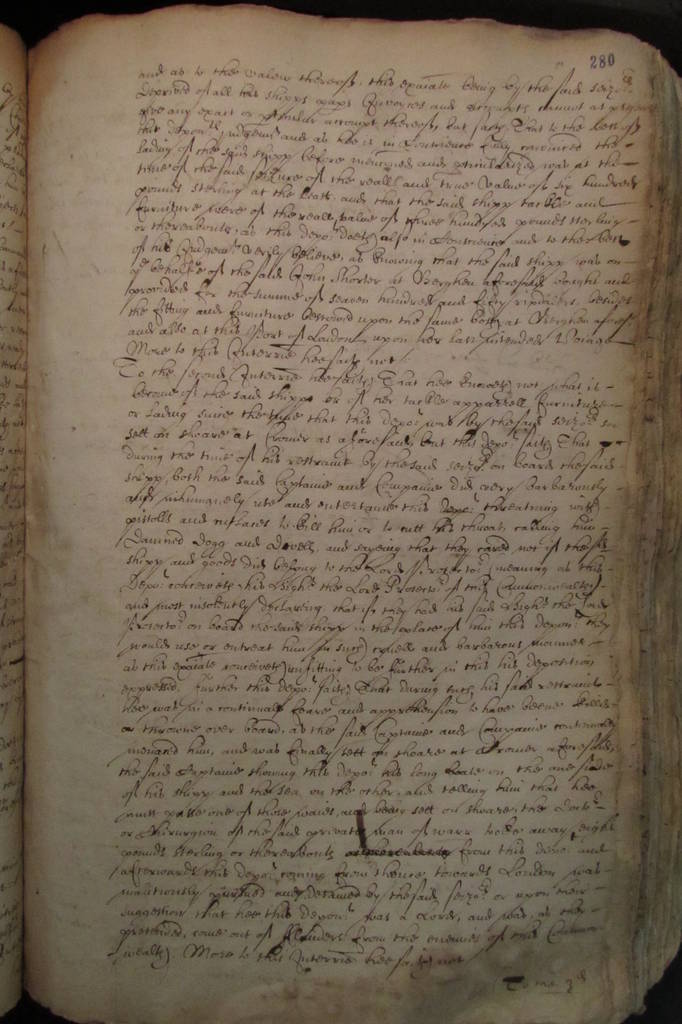 280
and as to the valew thereof, this exãiate being by the said seizors
deprived of all the shipps papers Invoyces and accounts cannot at present
give any exact or pticular accompt thereof, but saith That to the best of
this depon.ts Judgem.t and as hee is in Conscience fully convinced the
lading of the said shipp before mencõned and pticularized was at the
time of the said seizure of the reall and true value of six hundred
pounds sterling at the least, and that the said shipp tackle and
furniture were of the reall value of three hundred pounds sterling
or thereabouts, as this depo.t doeth also in Conscience and to the best
of his Judgem.t verily beleive, as knowing that the said shipp was on
ye behalfe of the said John Shorter at Berghen aforesaid bought and
provided for the summe of seaven hundred and fifty rixdollers, besides
the fitting and furniture bestowed upon the same both at Berghen afores.d
and also at this Port of London upon her last intended Voiage
More to this Interrie hee saith not
To the second Interrie hee saith That hee knoweth not what is
become of the said shipp or of her tackle apparrell furniture
or lading since the time that this depo.t was by the said seizors
sett on shoare at as aforesaid, but this depo.t saith That
during the time of his restraint by the said seizors on board the said
shipp, both the said Captaine and Companie did very barbarously
and inhumanely use and entertaine this depo.t threatning with
pistolls and cutlaces to kill him or to cutt his throat, calling him
damned Dogg and Devill, and sayeing that they cared not if the said
shipp and goods did belong to the Lord Protector (meaning as this
Depo.t conceiveth his Highs the Lord Protector of this Commonwealth)
and most insolently declaring that if they had his said Highs the Lord
Protector on board the said shipp in the place of him this depon.t they
would use or entreat him in such cruell and barbarous manner
as this exãiate conceiveth unfitting to be further in this his deposition
expressed, further this depo.t saith That during such his said restraint
hee was in a continuall feare and apprehension to have beene killed
or throwne over board, as the said Captaine and Companie continually
menaced him, and was finally sett on shoare at aforesaid,
the said Captaine showing this depo.t his long boate on the one side
of his shipp and the sea on the other, and telling him that hee
must passe one of those waies, and being sett on shoare, the Doctor
or Chirurgion of the said private man of warr tooke away eight
pounds sterling or thereabouts from this depo.t and
afterwards this depo.t coming from thence towards London was
malitiously pursued and detained by the said seizors or upon their
suggestion that hee this depon.t was a Lord, and was, as they
pretended, come out of Flanders from the enemies of this Common
wealth. More to this Interrie hee saith not
To the 3d